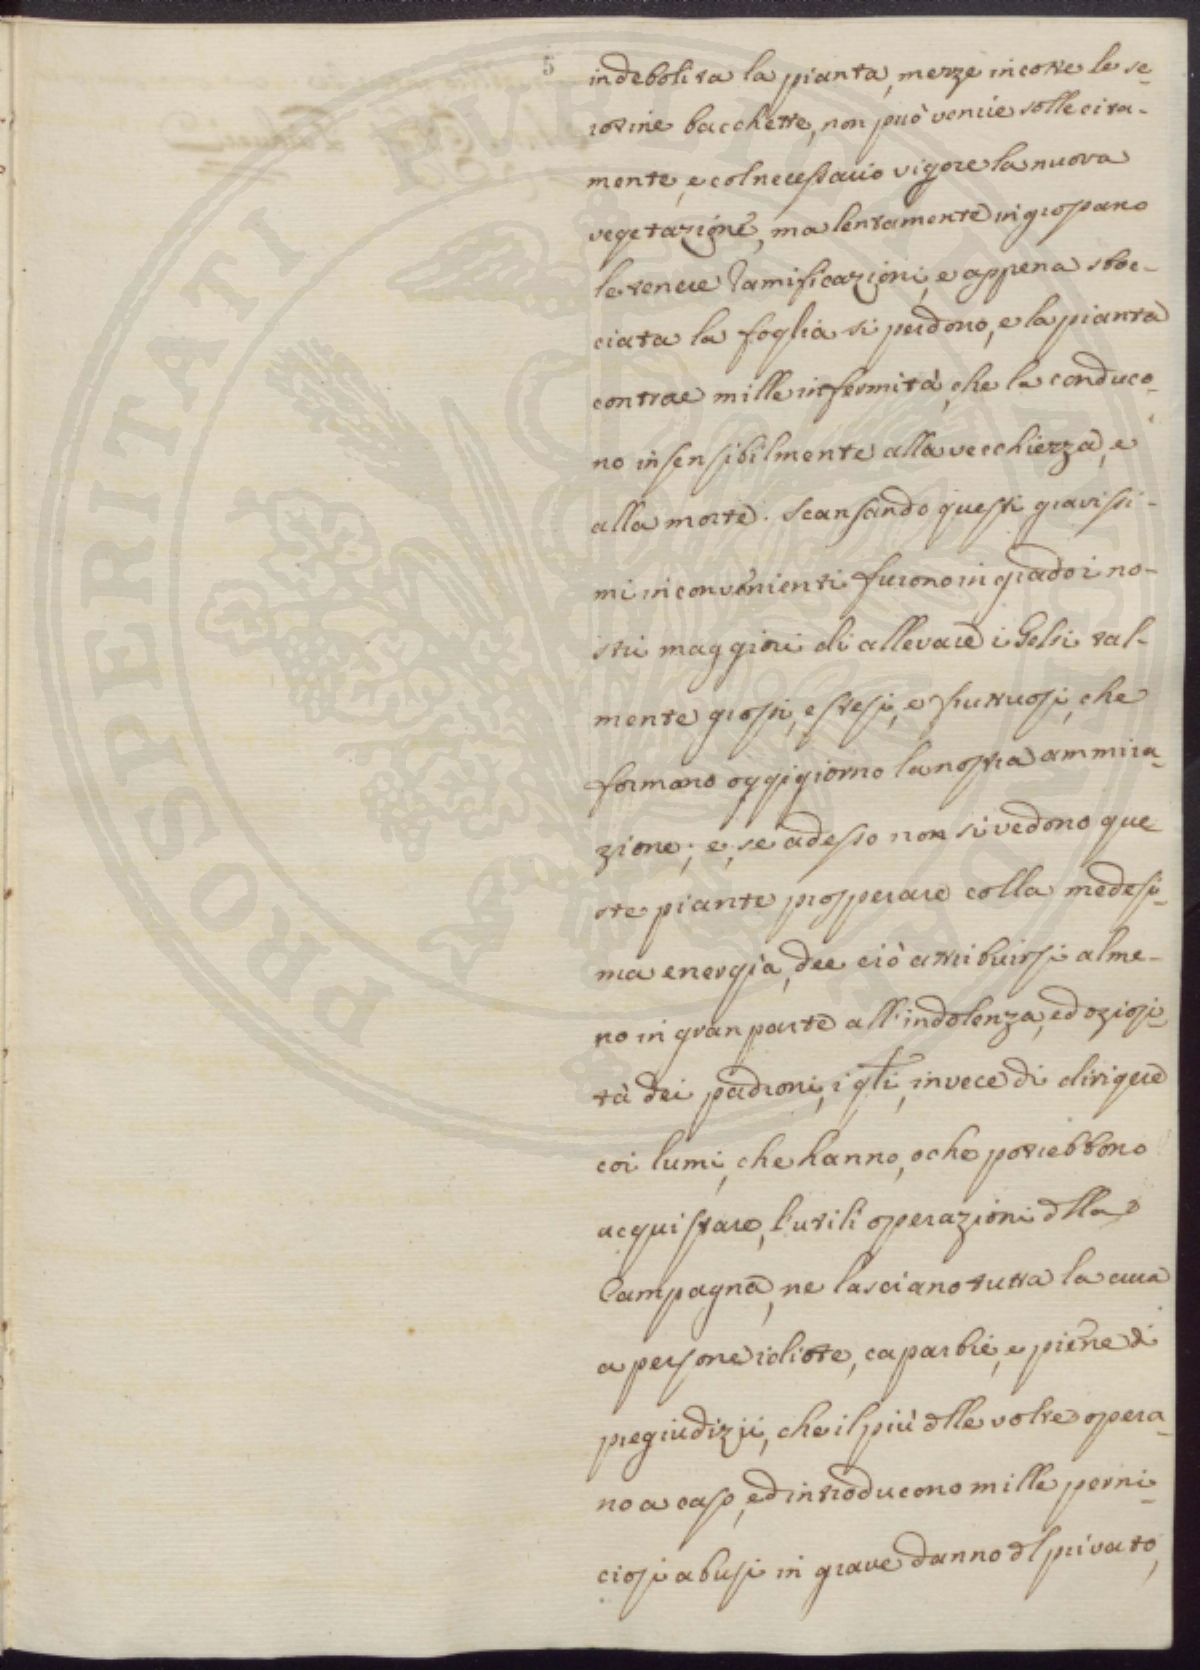 5
indebolita la pianta, mezze incotte le se-
rotine bacchette, non può venire sollecita-
mente, e col necessario vigore la nuova
vegetazione, ma lentamente ingrossano
le tenere ramificazioni, e appena sboc-
ciata la foglia si perdono, e la pianta
contrae mille infermità, che la conduco-
no insensibilmente alla vecchiezza, e
alla morte. Scansando questi gravissi-
mi inconvenienti furono in grado i no-
stri maggiori di allevare i Gelsi tal-
mente grossi, estesi, e fruttuosi, che
formano oggigiorno la nostra ammira-
zione; e, se adesso non si vedono que
ste piante prosperare colla medesi-
ma energia, dee ciò attribuirsi alme-
no in gran parte all'indolenza, ed oziosi-
tà dei padroni, i qli, invece di dirigere
coi lumi, che hanno, o che potrebbono
acquistare, l'utili operazioni dlla
Campagna, ne lasciano tutta la cura
a persone idiote, caparbie, e piene di
pregiudizji, che il più dlle volte opera-
no a caso, ed introducono mille perni-
ciosi abusi in grave danno dl privato,
PROSPERITATI PUBLICAE AUGENDAE